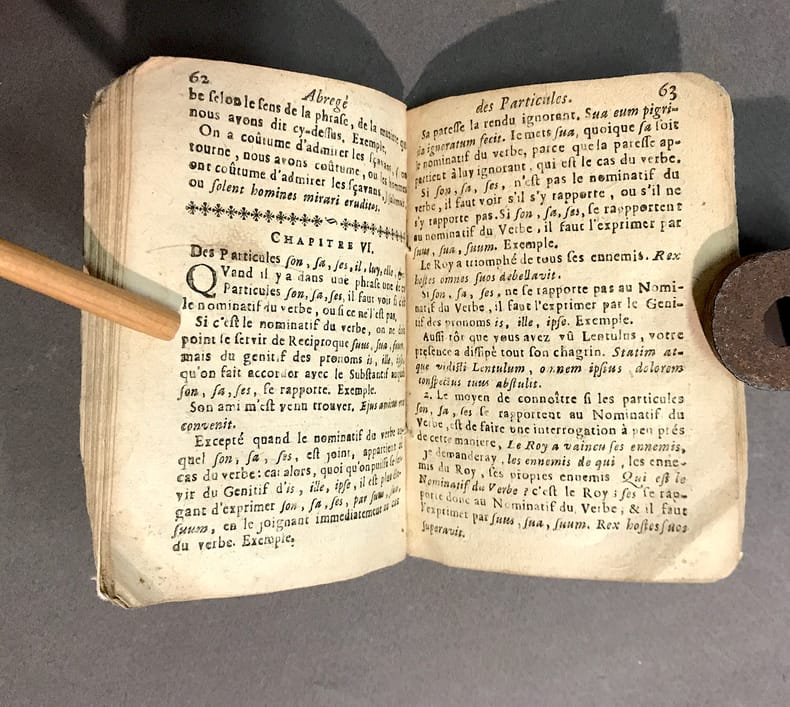 62
Abregé
be ſelon le ſens de la phraſe, de la
nous avons dit cy-deſſus. Exemple.
On a coûtume d'admirer les ſçavans,
tourne, nous avons coûtume, ou les hommes
ont coûtume d'admirer les ſçavans,
ou ſolent homines mirari eruditos.
CHAPITRE VI.
Des Particules ſon, ſa, ſes, il, luy, elle,
QVand il y a dans une phraſe une
Particules ſon, ſa, ſes, il faut voir ſi
le nominatif du verbe, ou ſi ce ne l'eſt pas.
Si c'eſt le nominatif du verbe, on ne
point ſe ſervir de Reciproque ſuus, ſua,
mais du genitif des pronoms is, ille,
qu'on fait accorder avec le Subſtantif
ſon, ſa, ſes, ſe rapporte. Exemple.
Son ami m'eſt venu trouver. Ejus
convenit.
Excepté quand le nominatif du verbe
quel ſon, ſa, ſes, eſt joint, appartient
cas du verbe: car alors, quoi qu'on
vir du Genitif d'is, ille, ipſe, il eſt plus
gant d'exprimer ſon, ſa, ſes, par ſuus, ſua,
ſuum, en le joignant immediatement au cas
du verbe. Exemple.
des Particules.
63
Sa pareſſe la rendu ignorant. Sua eum pigri-
ia ignoratum fecit. Je mets ſua, quoique ſa ſoit
le nominatif du verbe, parce que la pareſſe ap-
partient à luy ignorant, qui eſt le cas du verbe.
Si ſon, ſa, ſes, n'eſt pas le nominatif du
verbe, il faut voir s'il s'y rapporte, ou s'il ne
s'y rapporte pas. Si ſon, ſa, ſes, ſe rappportent
au nominatif du Verbe, il faut l'exprimer par
ſuus, ſua, ſuum. Exemple.
Le Roy a triomphé de tous ſes ennemis. Rex
hoſtes omnes ſuos debellavit.
Si ſon, ſa, ſes, ne ſe rapporte pas au Nomi-
natif du Verbe, il faut l'exprimer par le Geni-
tif des pronoms is, ille, ipſe. Exemple.
Auſſi tôt que vous avez vû Lentulus, votre
preſence a diſſipé tout ſon chagrin. Statim at-
que vidiſti Lentulum, omnem ipſius dolorem
conſpectus tuus abſtulit.
2. Le moyen de connoître ſi les particules
ſon, ſa, ſes ſe rapportent au Nominatif du
Verbe, eſt de faire une interrogation à peu prés
de cette maniere, Le Roy a vaincu ſes ennemis,
je demanderay, les ennemis de qui, les enne-
mis du Roy, ſes propres ennemis Qui eſt le
Nominatif du Verbe? c'eſt le Roy; ſes ſe rap-
porte donc au Nominatif du Verbe, & il faut
l'exprimer par ſuus, ſua, ſuum. Rex hoſtes ſuos
ſuperavit.